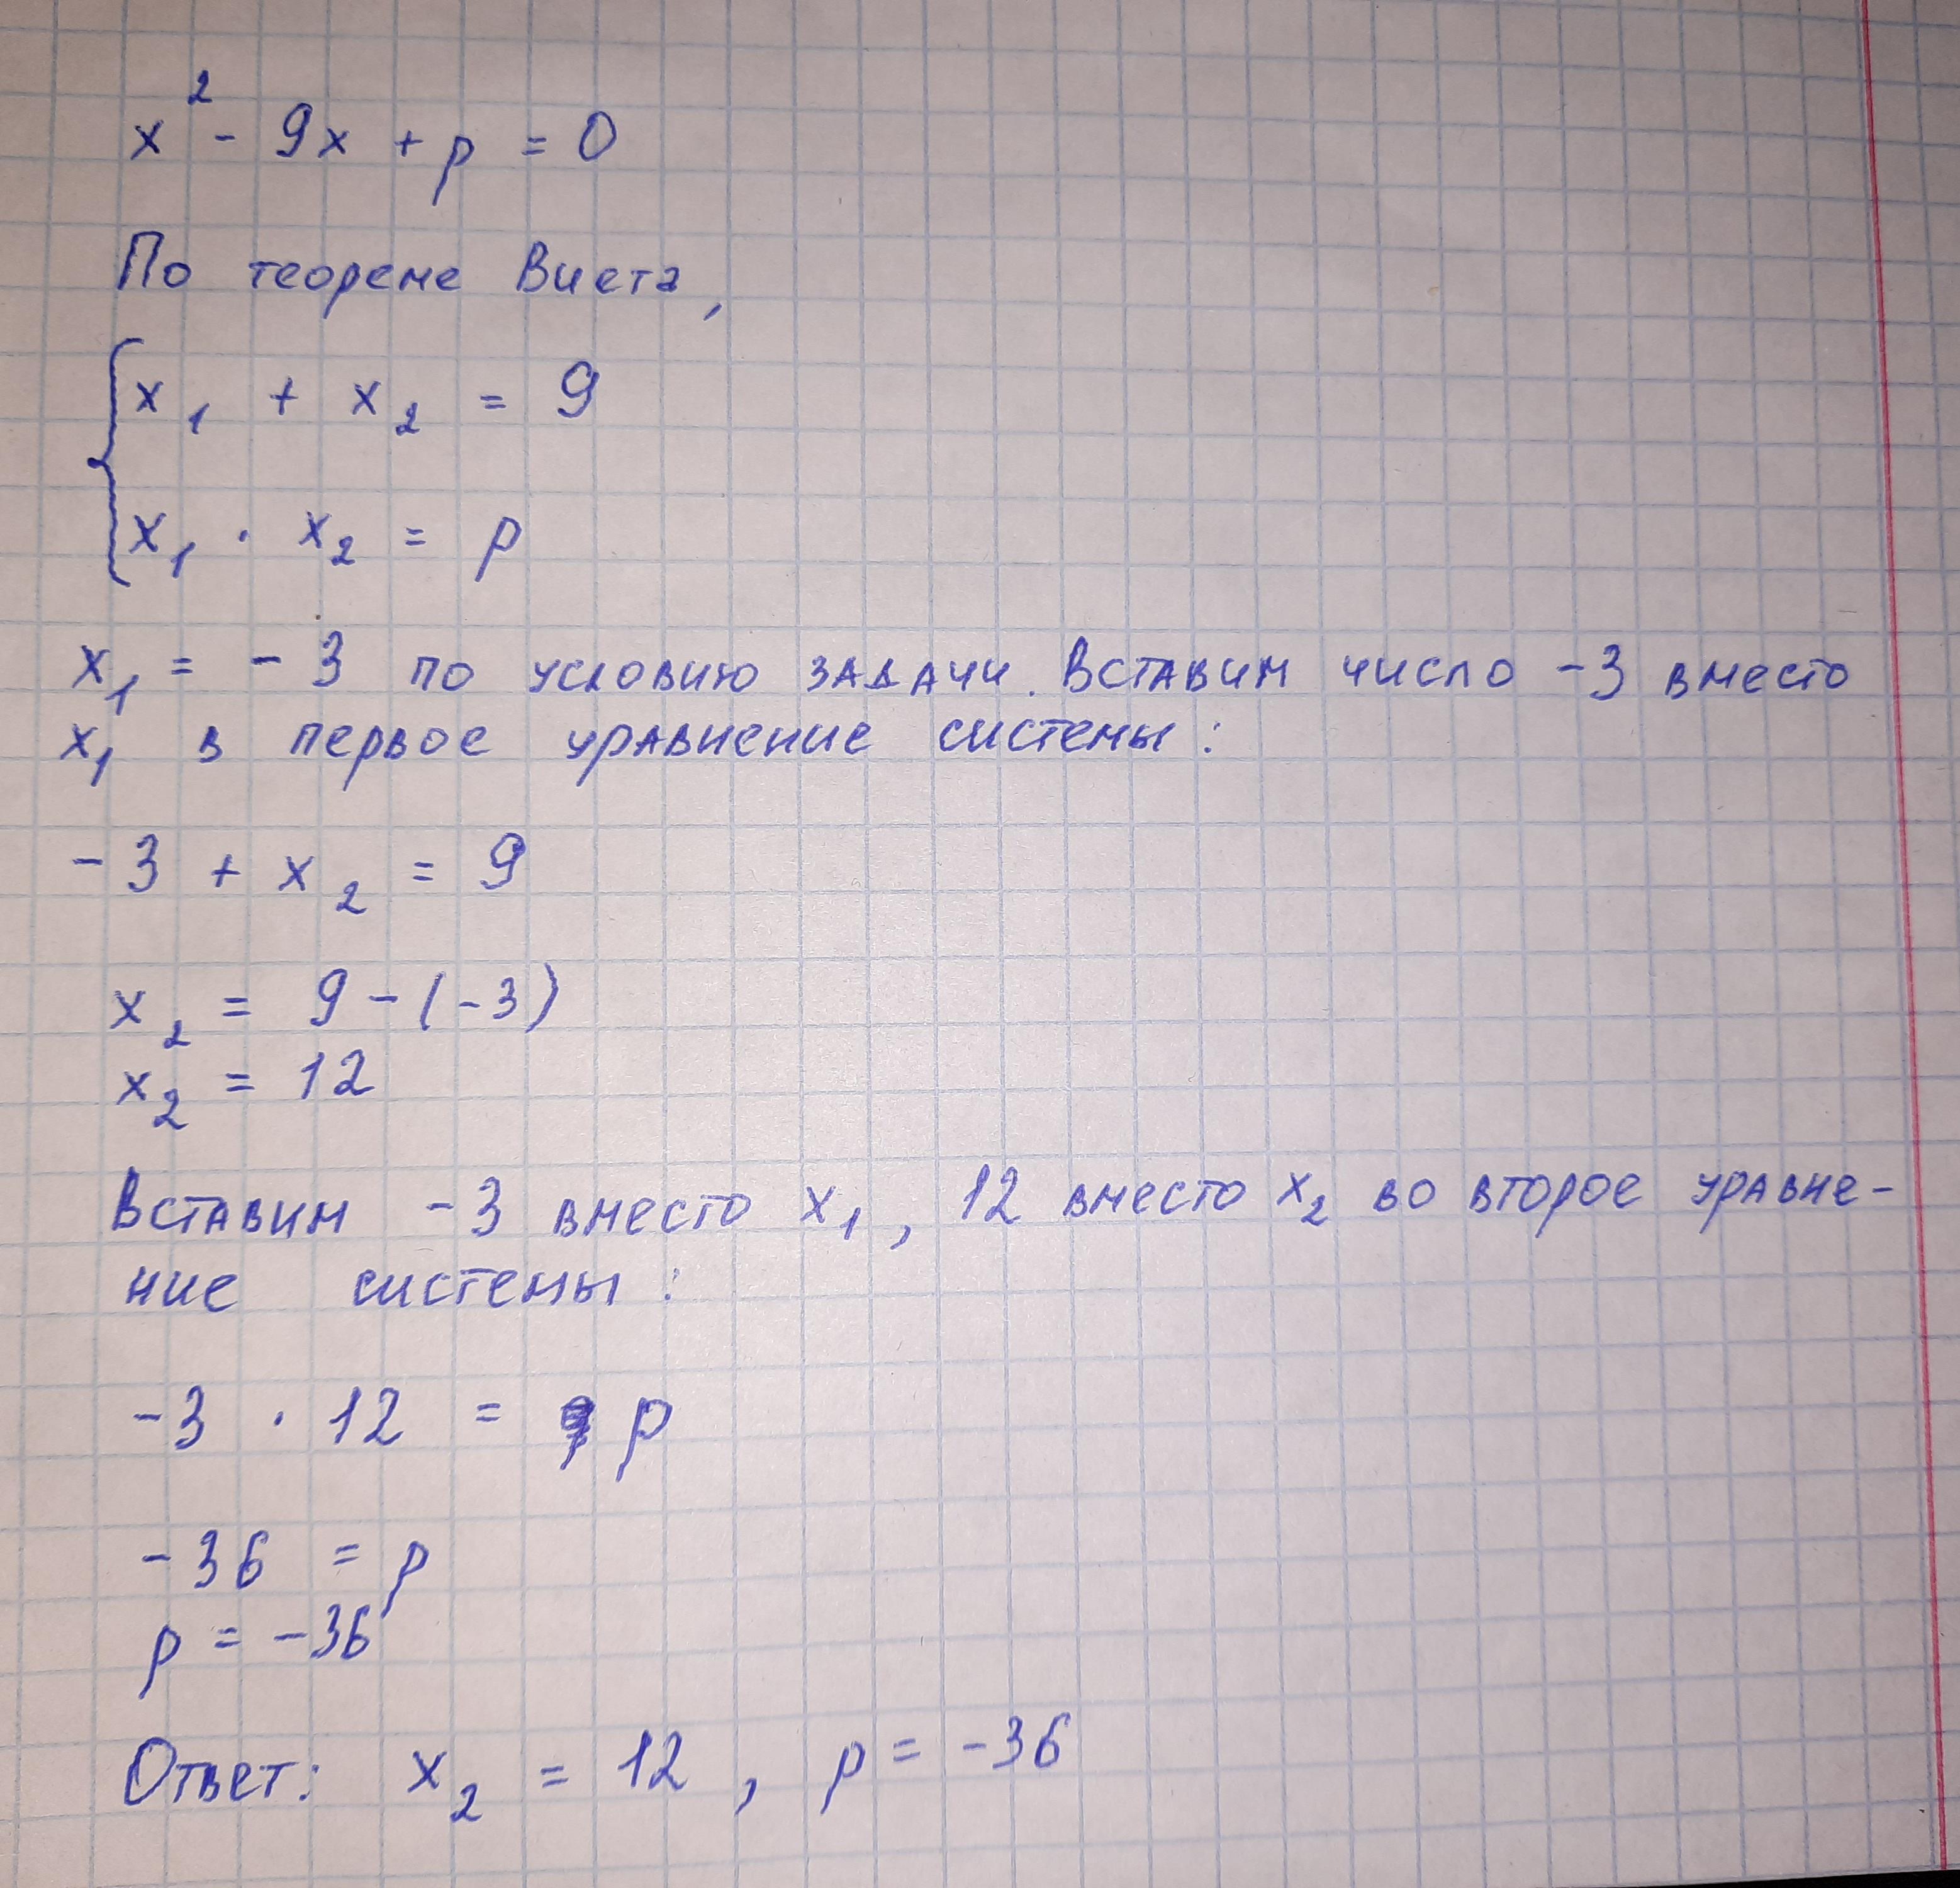 x² - 9x + p = 0
По теореме Виета,
x₁ + x₂ = 9
x₁ · x₂ = p
x₁ = - 3 по условию задачи. Вставим число -3 вместо
x₁ в первое уравнение системы:
- 3 + x₂ = 9
x₂ = 9 - (-3)
x₂ = 12
Вставим -3 вместо x₁, 12 вместо x₂ во второе уравне-
ние системы:
-3 · 12 = p
-36 = p
p = -36
Ответ: x₂ = 12, p = -36